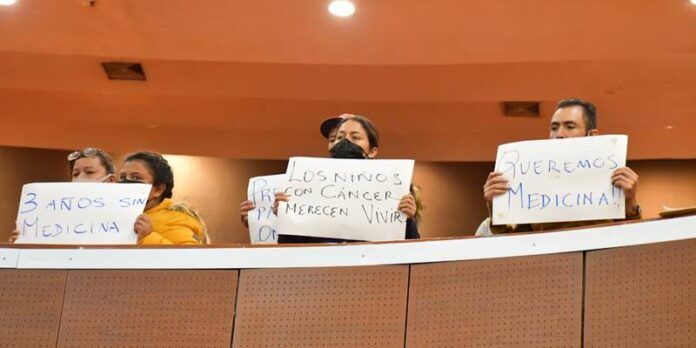 3 AÑOS SIN
MEDICINA
LOS NIÑOS
CON CÁNCER
MERECEN VIVIR
QUEREMOS
MEDICINA!!